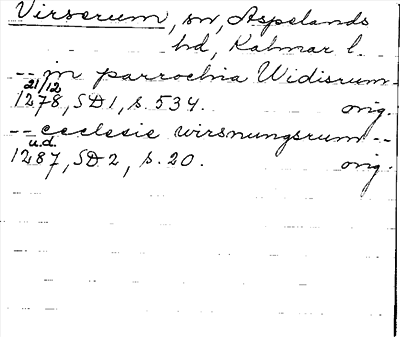 Virserum, sn, Aspelands
hd, Kalmar l.
-- in parrochia Widisrum -
21/12
1278, SD1, s. 534. orig.
-- ecclesie wirsnungsrum --
u.d.
1287, SD2, s. 20. orig.